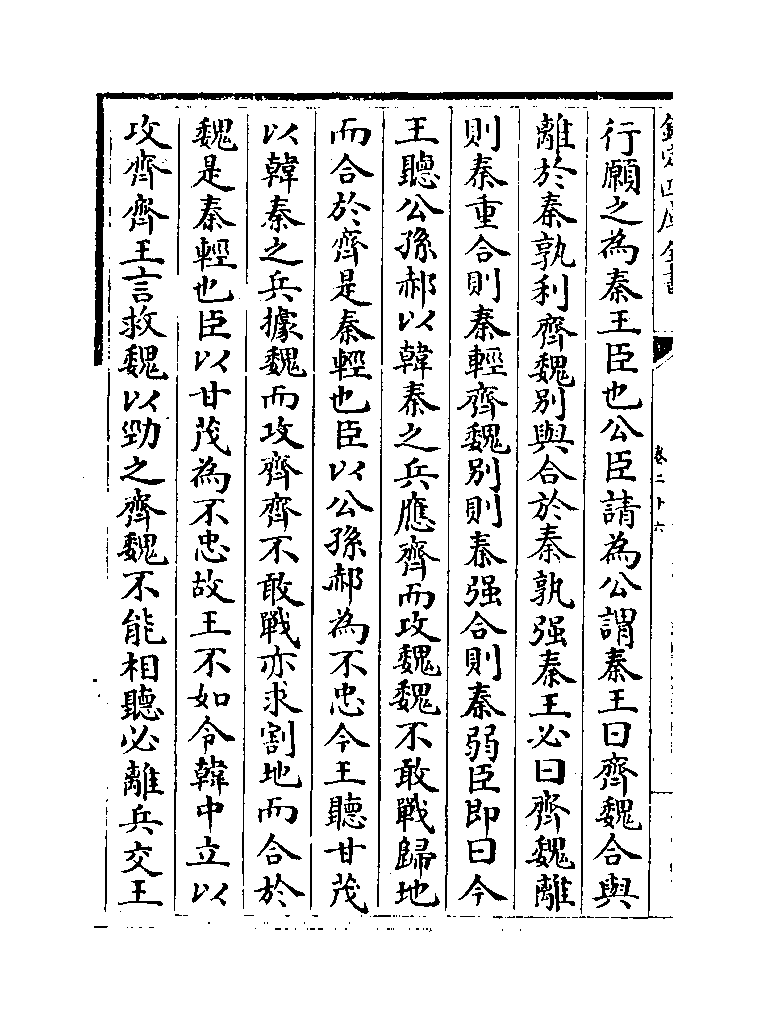 欽定四庫全書
卷二十六
行願之為秦王臣也公臣請為公謂秦王曰齊魏合與
離於秦孰利齊魏别與合於秦孰强秦王必曰齊魏離
則秦重合則秦輕齊魏别則秦强合則秦弱臣即曰今
王聽公孫郝以韓秦之兵應齊而攻魏魏不敢戰歸地
而合於齊是秦輕也臣以公孫郝為不忠今王聽甘茂
以韓秦之兵據魏而攻齊齊不敢戰亦求割地而合於
魏是秦輕也臣以甘茂為不忠故王不如令韓中立以
攻齊齊王言救魏以勁之齊魏不能相聽必離兵交王